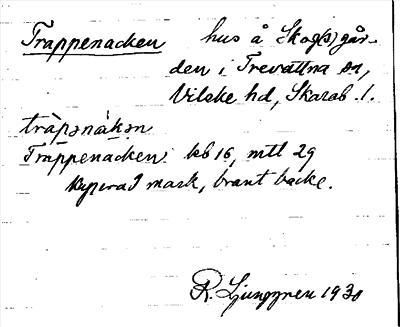 Trappenacken hus å Skog(s)går-
den i Trevattna sn,
Vilske hd, Skarab. l.
tràpənàkən
Trappenacken: kb 16, mtl 29
Kuperad mark, brant backe.
R. Ljunggren 1930